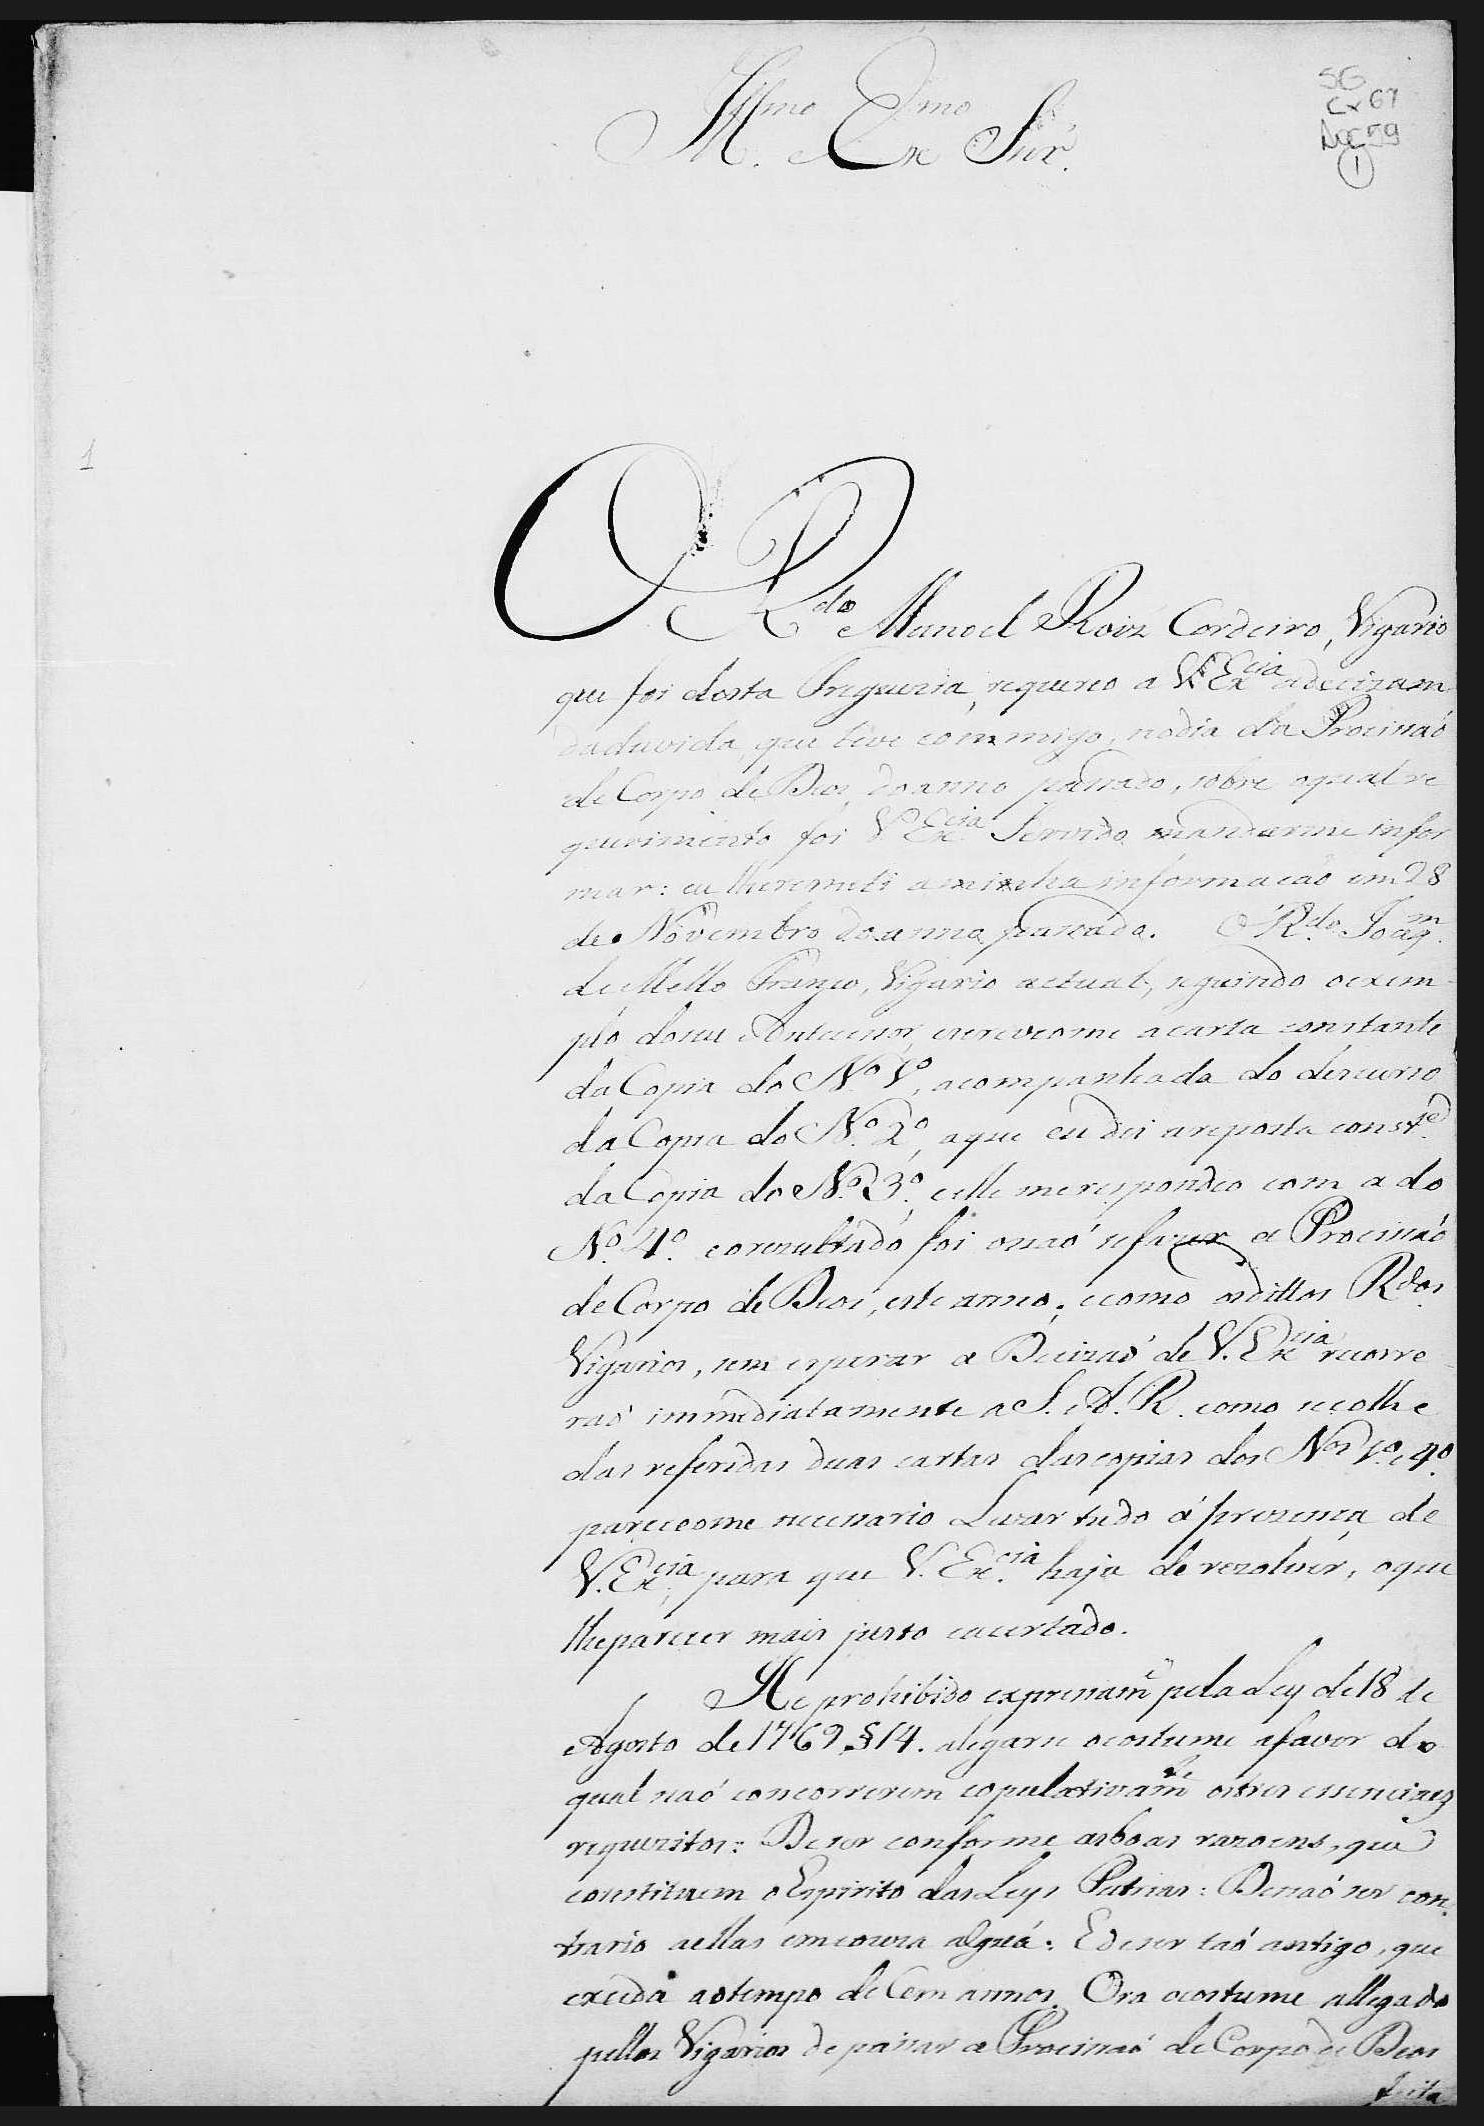 SG
Cx 67
Doc 59
1
Ill.mo Ex.mo Snr.
1
O R.do Manoel Roiz Cordeiro, Vigario
que foi desta Freguezia, requereo a V. Ex.cia a decizam
da duvida, que teve commigo, no dia da Procissaó
de Corpo de Deos, do anno passado, sobre o qual re
querimento foi V. Ex.cia Servido mandarme infor
mar: eu lhe remeti a minha informacaó em 28
de Novembro do anno passado. O R.do Joaq.m
de Mello Franco, Vigario actual, seguindo o exem-
plo do seu Antecessor, escreveome a carta constante
da Copia do N.o 1.o, acompanhada do discurso
da Copia do N.o 2.o, a que eu dei a reposta const.e
da Copia do N.o 3.o, e elle me respondeo com a do
N.o 4.o e o rezultado foi o naó se fazer a Procissaó
de Corpo de Deos, este anno; e como os dittos R.dos
Vigarios, sem esperar a Decizaó de V. Ex.cia recorre
raó immediatamente a S. A. R. como se colhe
das referidas duas cartas das copias dos N.os 1.o e 4.o
pareceome necessario Levar tudo á prezença de
V. Ex.cia, para que V. Ex.cia haja de rezolver, o que
lhe parecer mais justo e acertado.
He prohibido expressam.e pela Ley de 18 de
Agosto de 1769 §14. alegarse o costume a favor do
qual naó concorrerem copulativam.e os tres essenciaes
requezitos: De ser conforme as boas razoens, que
constituem o Espirito das Leys Patrias: De naó ser con-
trario a ellas em couza algũa: E de ser taó antigo, que
exceda ao tempo de Cem annos. Ora o costume allegado
pellos Vigarios de passar a Procissaó de Corpo de Deos
feita